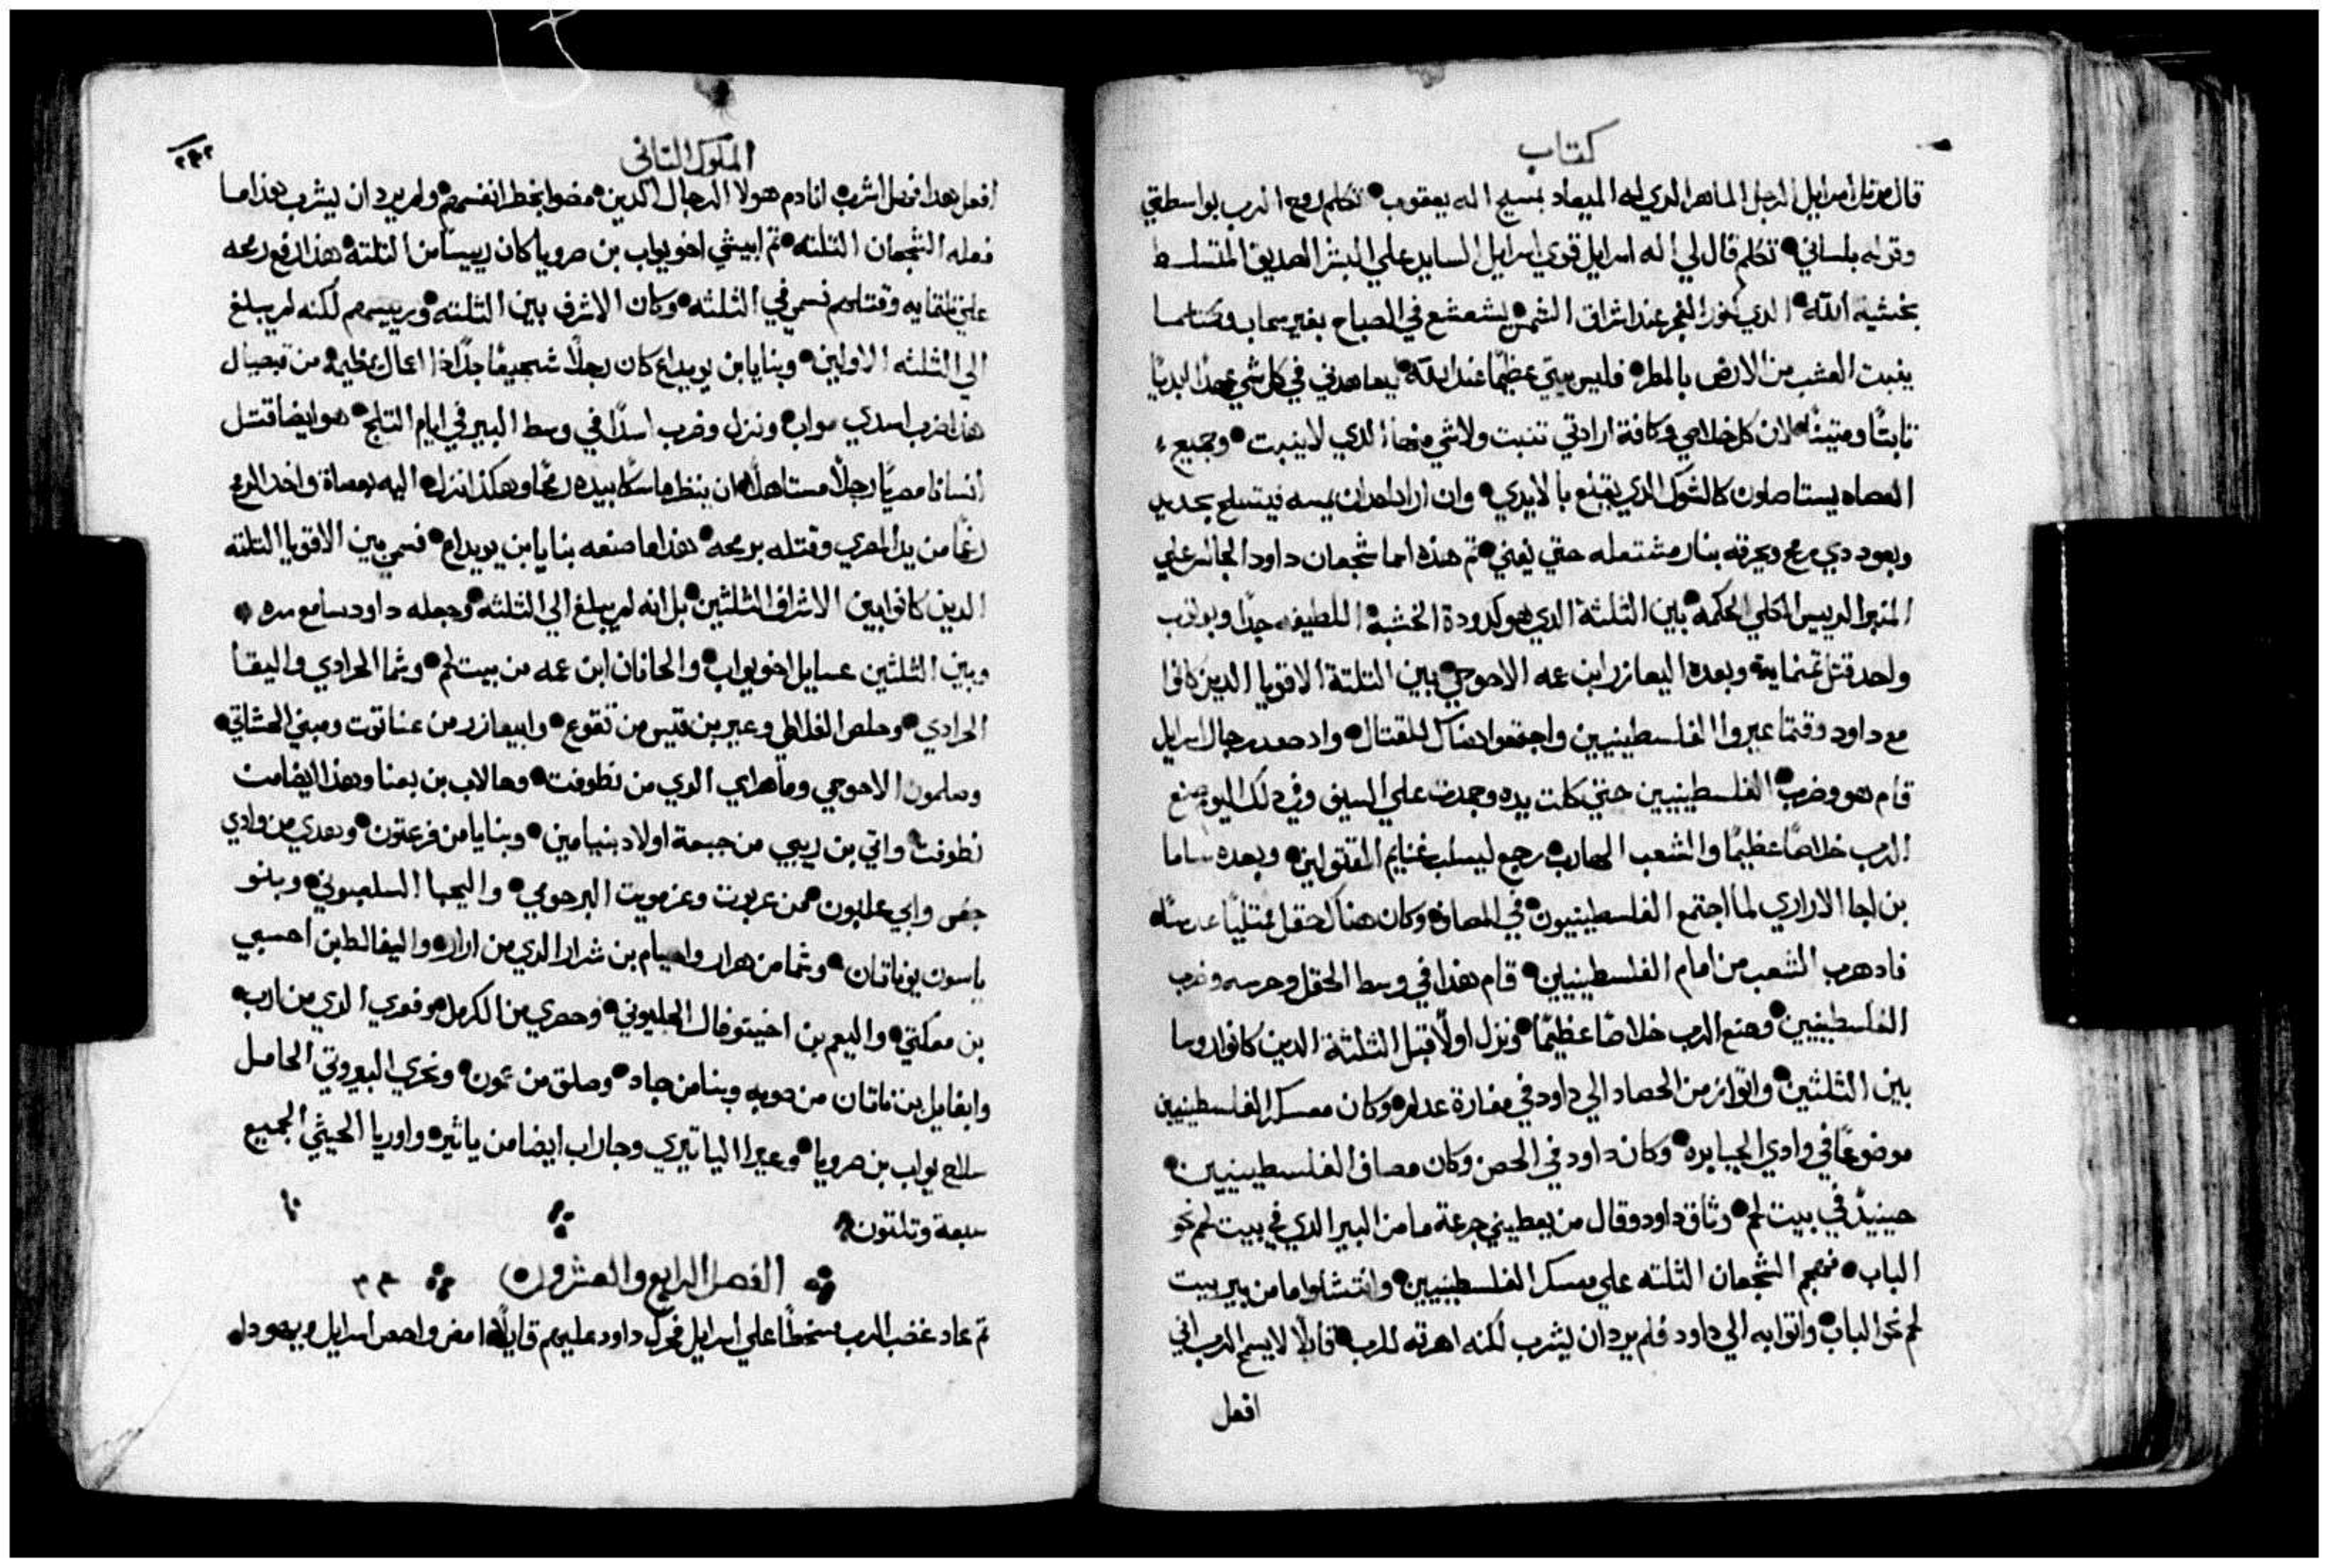 كتاب
قال مرتل اسرايل الرجل الماهر الدي له الميعاد بمسيح اله يعقوب تكلم روح الرب بواسطتي
وقوله بلساني تكلم قال لي اله اسرايل قوي اسرايل السايد علي البشر الصديق المتسلط
بخشية الله الدي كنور الفجر عند اشراق الشمس يشعشع في الصباح بغير سحاب وكما
ينبت العشب من الارض بالمطر فليس بيتي عظيمًا عند الله ليعاهدني في كل شي عهدًا ابديًا
ثابتًا ومتينًا لان كل خلاصي وكافة ارادتي تنبت ولا شي منها الدي لا ينبت وجميع
العصاه يستاصلون كالشوك الدي يقلع بالايدي وان اراد احد ان يمسه فيتسلح بحديد
وبعود دي رمح ويحرقه بنار مشتعله حتي يفني تم هذه اسما شجعان داود الجالس علي
المنبر الرييس الكلي الحكمه بين الثلثة الدي هو كدودة الخشبة اللطيفه جدًا وبوثوب
واحد قتل تمنماية وبعده اليعازر ابن عمه الاحوحي بين التلتة الاقويا الدين كانوا
مع داود وقتما عيروا الفلسطينيين واجتمعوا هناك للقتال واد صعد رجال اسرايل
قام هو وضرب الفلسطينيين حتي كلت يده وجمدت علي السيف وفي دلك اليوم صنع
الرب خلاصًا عظيمًا والشعب الهارب رجع ليسلب غنايم المقتولين وبعده ساما
بن اجا الاراري لما اجتمع الفلسطينيون في المصاف وكان هناك حقل ممتليًا عدسًا
فاد هرب الشعب من امام الفلسطينيين قام هذا في وسط الحقل وحرسه وضرب
الفلسطينيين وصنع الرب خلاصًا عظيمًا ونزل اولًا قبل الثلثة الدين كانوا روسا
بين الثلثين واتوا زمن الحصاد الي داود في مغارة عدلم وكان معسكر الفلسطينيين
موضوعًا في وادي الجبابره وكان داود في الحصن وكان مصاف الفلسطينيين
حينيدٍ في بيت لحم وتاق داود وقال من يعطيني جرعة ما من البير الدي في بيت لحم نحو
الباب فهجم الشجعان الثلثه علي معسكر الفلسطينيين وانتشلوا ما من بير بيت
لحم نحو الباب واتوا به الي داود فلم يرد ان يشرب لكنه اهرقه للرب قايلًا لا يسمح الرب اني
افعل
الملوك الثاني
٢٤٢
افعل هدا فهل اشرب انا دم هولا الرجال الدين مضوا بخطر انفسهم ولم يرد ان يشرب هذا ما
فعله الشجعان الثلثه تم ابيشي اخو يواب بن صرويا كان رييسًا من الثلثة هذا رفع رمحه
علي تلتمايه وقتلهم فسمي في الثلثه وكان الاشرف بين الثلثه ورييسهم لكنه لم يبلغ
الي الثلثه الاولين وبنايا بن يويداع كان رجلًا شجيعًا جدًا ذا اعمال عظيمه من قبصيال
هذا ضرب اسدي مواب ونزل وضرب اسدًا في وسط البير في ايام التلج هو ايضا قتل
انسانا مصريًا رجلًا مستاهلًا ان ينظر ماسكًا بيده رمحًا وهكذا نزل اليه بعصاة واخد الرمح
رغمًا من يد المصري وقتله برمحه هذا ما صنعه بنايا بن يويداع فسمي بين الاقويا التلته
الدين كانوا بين الاشراف الثلثين بل انه لم يبلغ الي الثلثه وجعله داود سامع سره
وبين الثلثين عسايل اخو يواب والحانان ابن عمه من بيت لحم وشما الحرادي واليقا
الحرادي وحلص الفلطي وعير بن قيس من تقوع وابيعازر من عناتوت ومبني الحشاتي
وصلمون الاحوحي وماهراي الدي من نطوفت وحالاب بن بعنا وهذا ايضا من
نطوفت واتي بن ريبي من جبعة اولاد بنيامين وبنايا من فرعتون وهدي من وادي
جعس وابي علبون من عربوت وعزمويت البرحومي واليحبا السلعبوني وبنو
ياسون يوناتان وشما من هرار واحيام بن شرار الدي من ارار واليفالط بن احسبي
بن معكتي واليعم بن اخيتوفال الجليوني وحصري من الكرمل وفعري الدي من ارب
وايغايل بن ناتان من صوبه وبنا من جاد وصلق من عمون ونحري البيروتي الحامل
سلاح يواب بن صرويا وعيرا الياتيري وجاراب ايضا من ياثير واوريا الحيثي الجميع
سبعة وتلتون
الفصل الرابع والعشرون
تم عاد غضب الرب سخطًا علي اسرايل فحرك داود عليهم قايلًا امض واحص اسرايل ويهودا